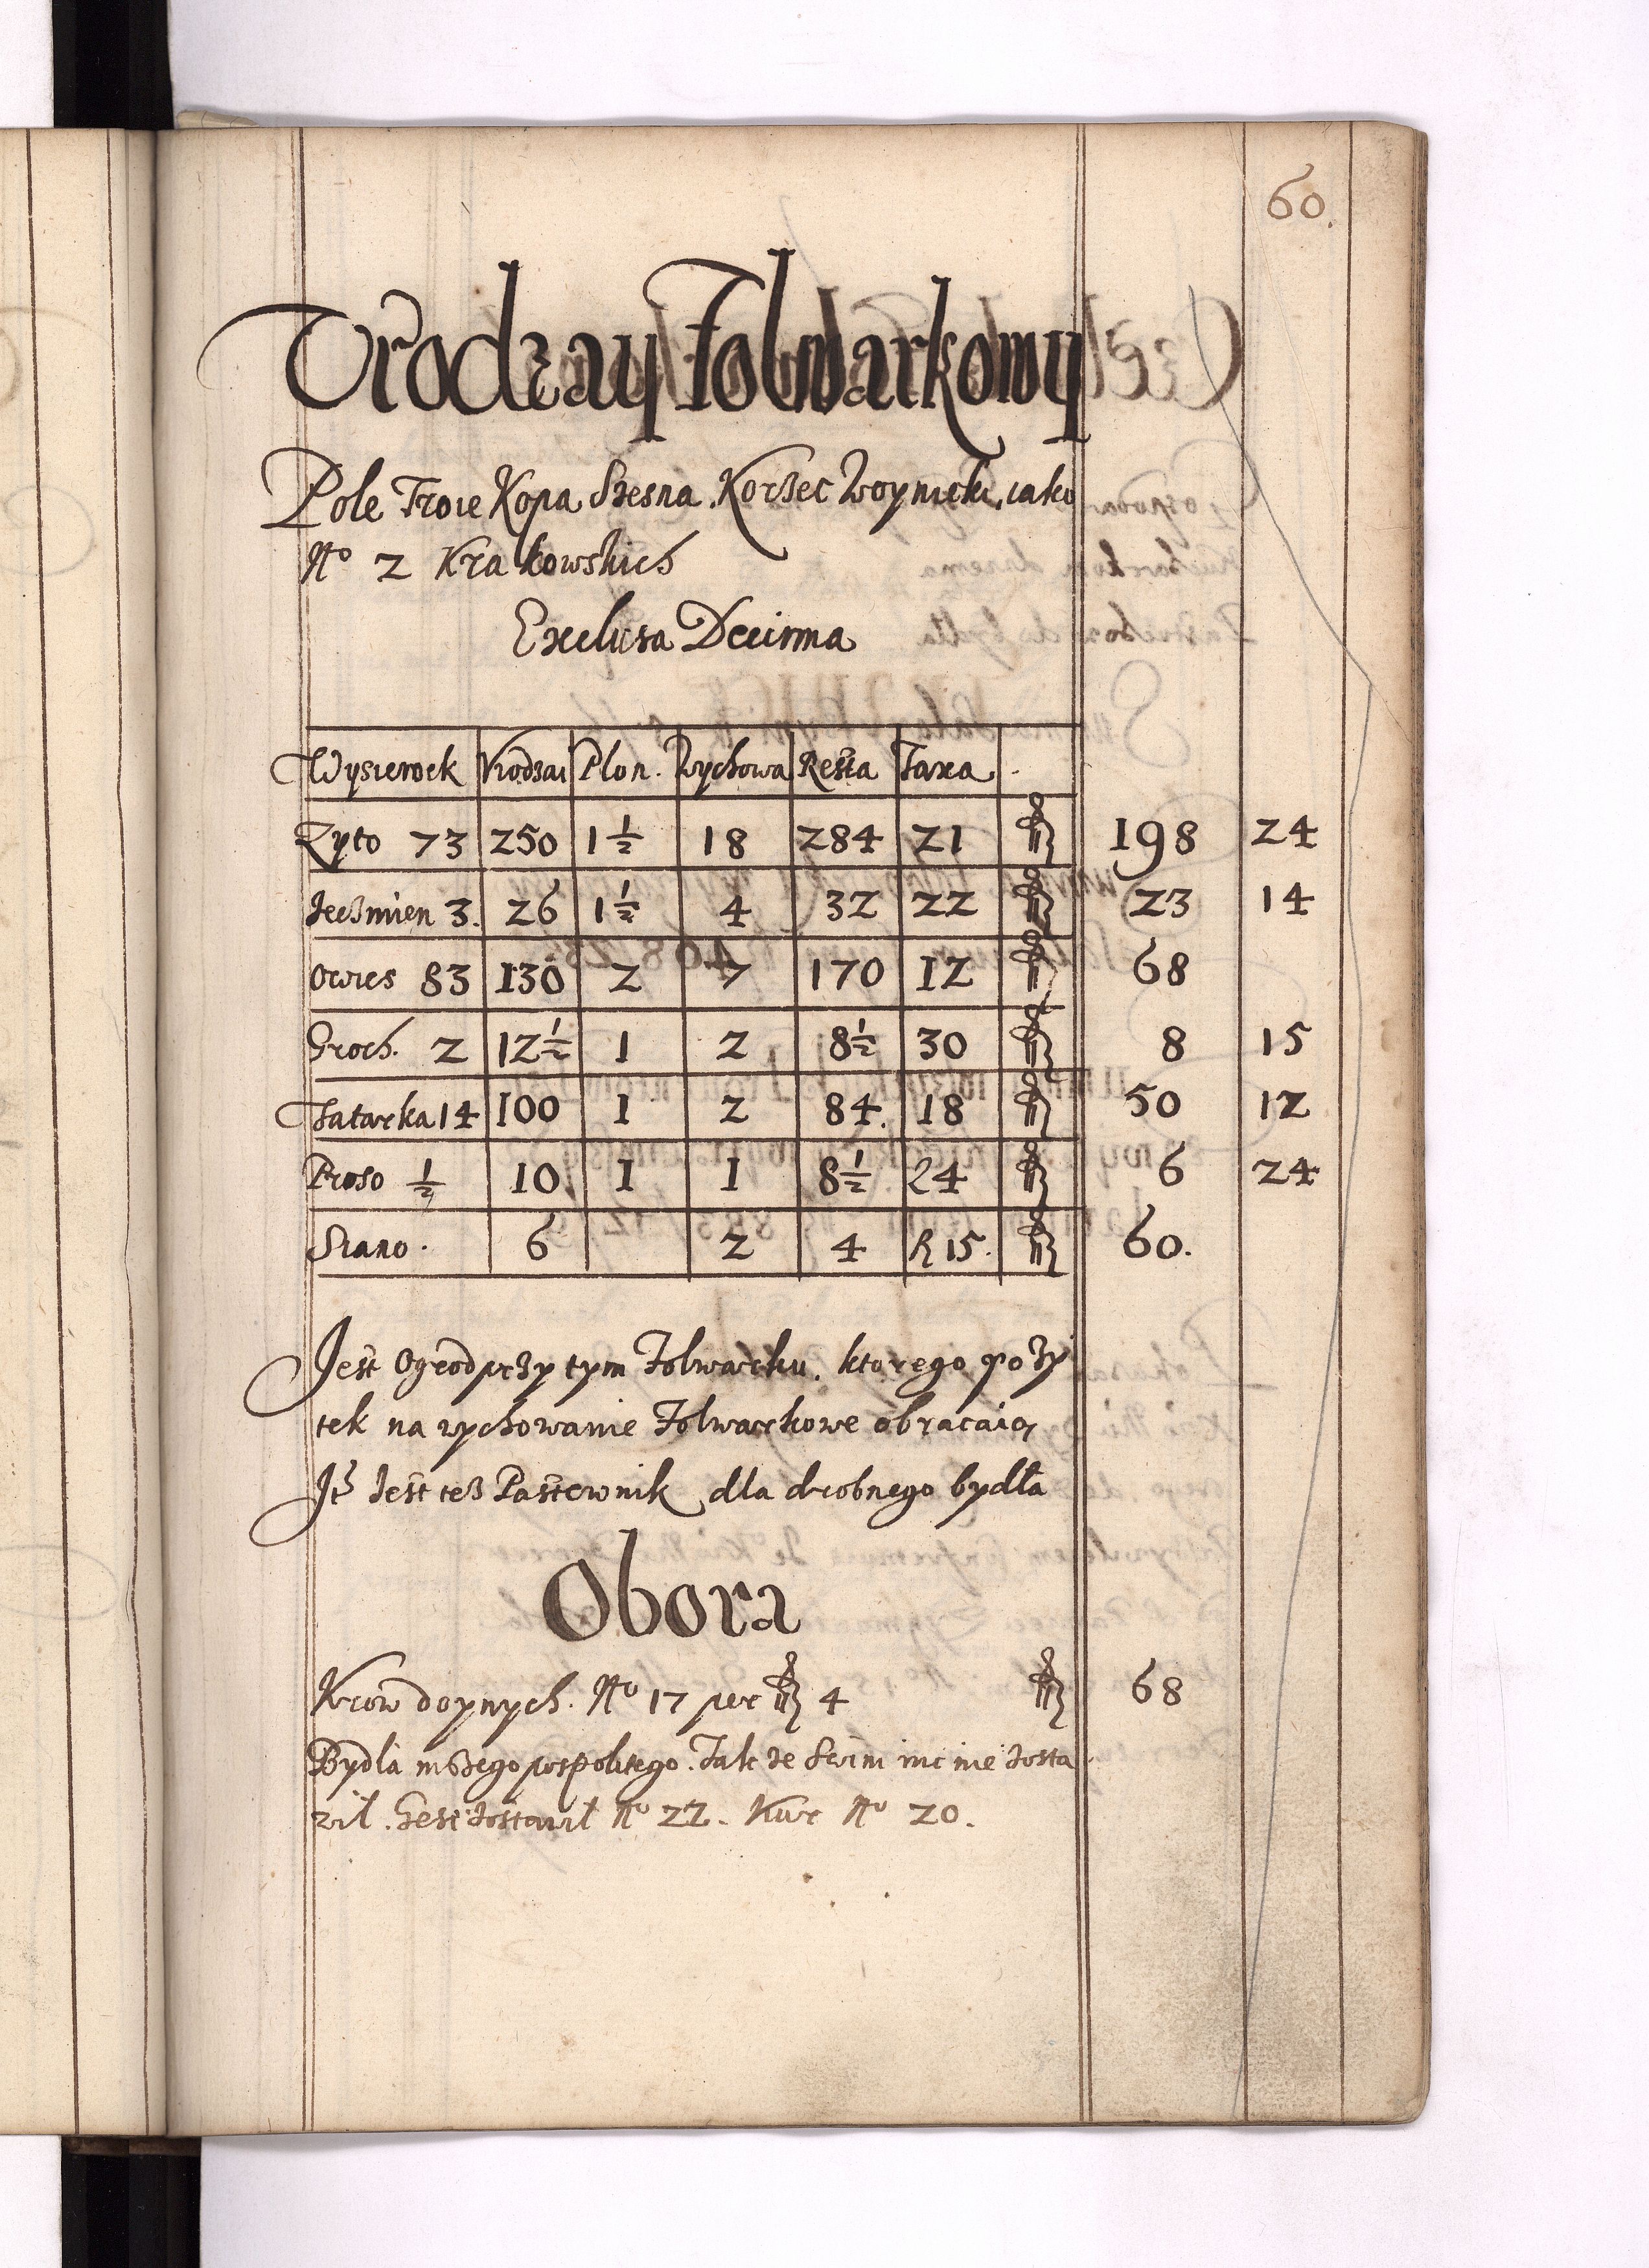 60.
Vrodzay Folwarkowy
Pole Troie Kopa Szesna. Korzec Woynicki. iako
No 2 Krakowskich
Exclusa Decima
Wysiewek Vrodzai Plon. Wychowa Resta Taxa
Zyto 73 250 1 1/2 18 284 21 198 24
Jeczmien 3. 26 1 1/2 4 32 22 23 14
Owies 83 130 2 7 170 12 68
Groch. 2 12 1/2 1 2 8 1/2 30 8 15
Tatarka 14 100 1 2 84. 18 50 12
Proso 1/2 10 1 1 8 1/2 24 6 24
Siano. 6 2 4 15. 60.
Jest Ogrod przy tym Folwarku. ktorego pozy
tek na wychowanie Folwarkowe obracaią
Jt Jest też Pastewnik dla drobnego bydła
Obora
Krow doynych. No 17 per 4 68
Bydla inszego pospolitego. Takze Swini nic nie zosta
wil. Gesi zostawił No 22. Kur No 20.